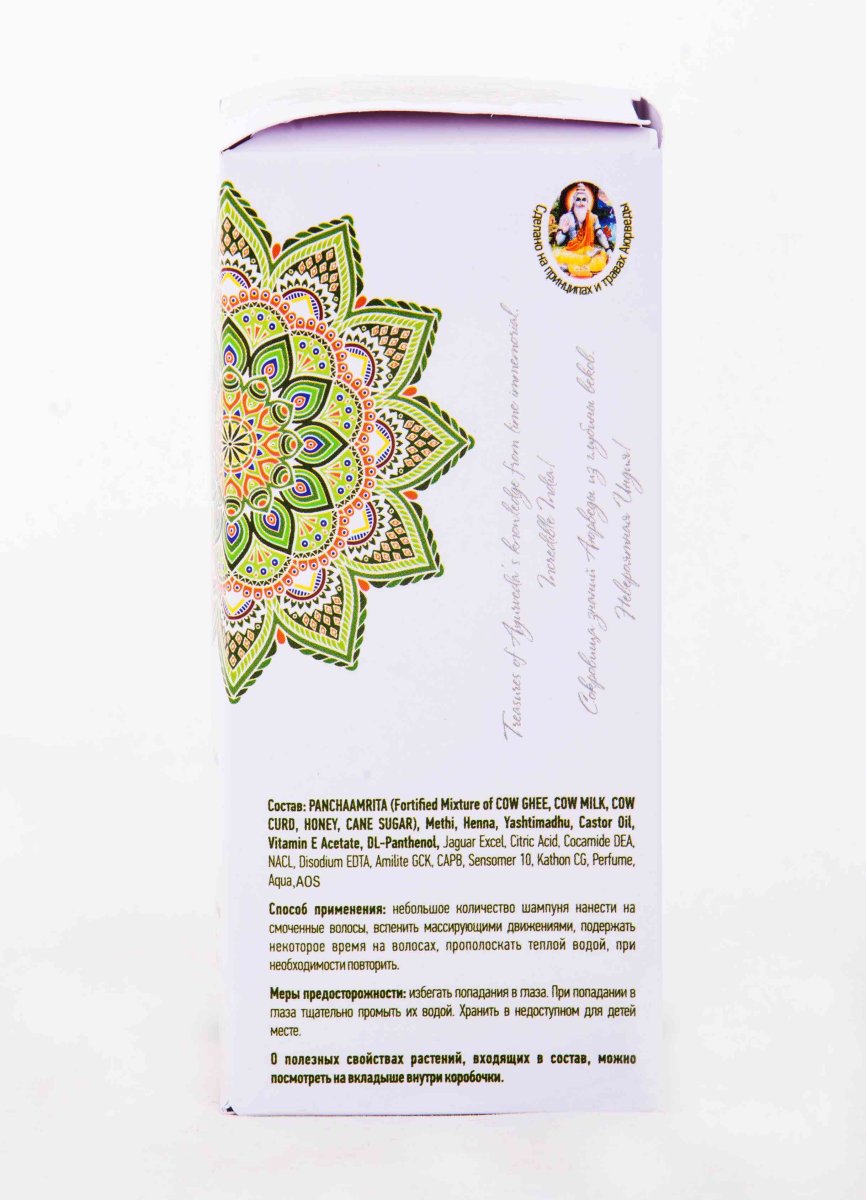 Сделано на принципах и травах Аюрведы
Treasures of Ayurveda's knowledge from time immemorial.
Incredible India!
Сокровища знаний Аюрведы из глубины веков.
Невероятная Индия!
Состав: PANCHAAMRITA (Fortified Mixture of COW GHEE, COW MILK, COW
CURD, HONEY, CANE SUGAR), Methi, Henna, Yashtimadhu, Castor Oil,
Vitamin E Acetate, DL-Panthenol, Jaguar Excel, Citric Acid, Cocamide DEA,
NACL, Disodium EDTA, Amilite GCK, CAPB, Sensomer 10, Kathon CG, Perfume,
Aqua,AOS
Способ применения: небольшое количество шампуня нанести на
смоченные волосы, вспенить массирующими движениями, подержать
некоторое время на волосах, прополоскать теплой водой, при
необходимости повторить.
Меры предосторожности: избегать попадания в глаза. При попадании в
глаза тщательно промыть их водой. Хранить в недоступном для детей
месте.
О полезных свойствах растений, входящих в состав, можно
посмотреть на вкладыше внутри коробочки.